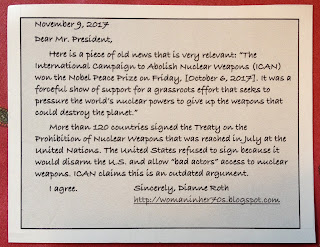 November 9, 2017
Dear Mr. President,
Here is a piece of old news that is very relevant: "The
International Campaign to Abolish Nuclear Weapons (ICAN)
won the Nobel Peace Prize on Friday, [October 6, 2017]. It was a
forceful show of support for a grassroots effort that seeks to
pressure the world's nuclear powers to give up the weapons that
could destroy the planet."
More than 120 countries signed the Treaty on the
Prohibition of Nuclear Weapons that was reached in July at the
United Nations. The United States refused to sign because it
would disarm the U.S. and allow "bad actors" access to nuclear
weapons. ICAN claims this is an outdated argument.
I agree. Sincerely, Dianne Roth
http://womaninher70s.blogspot.com